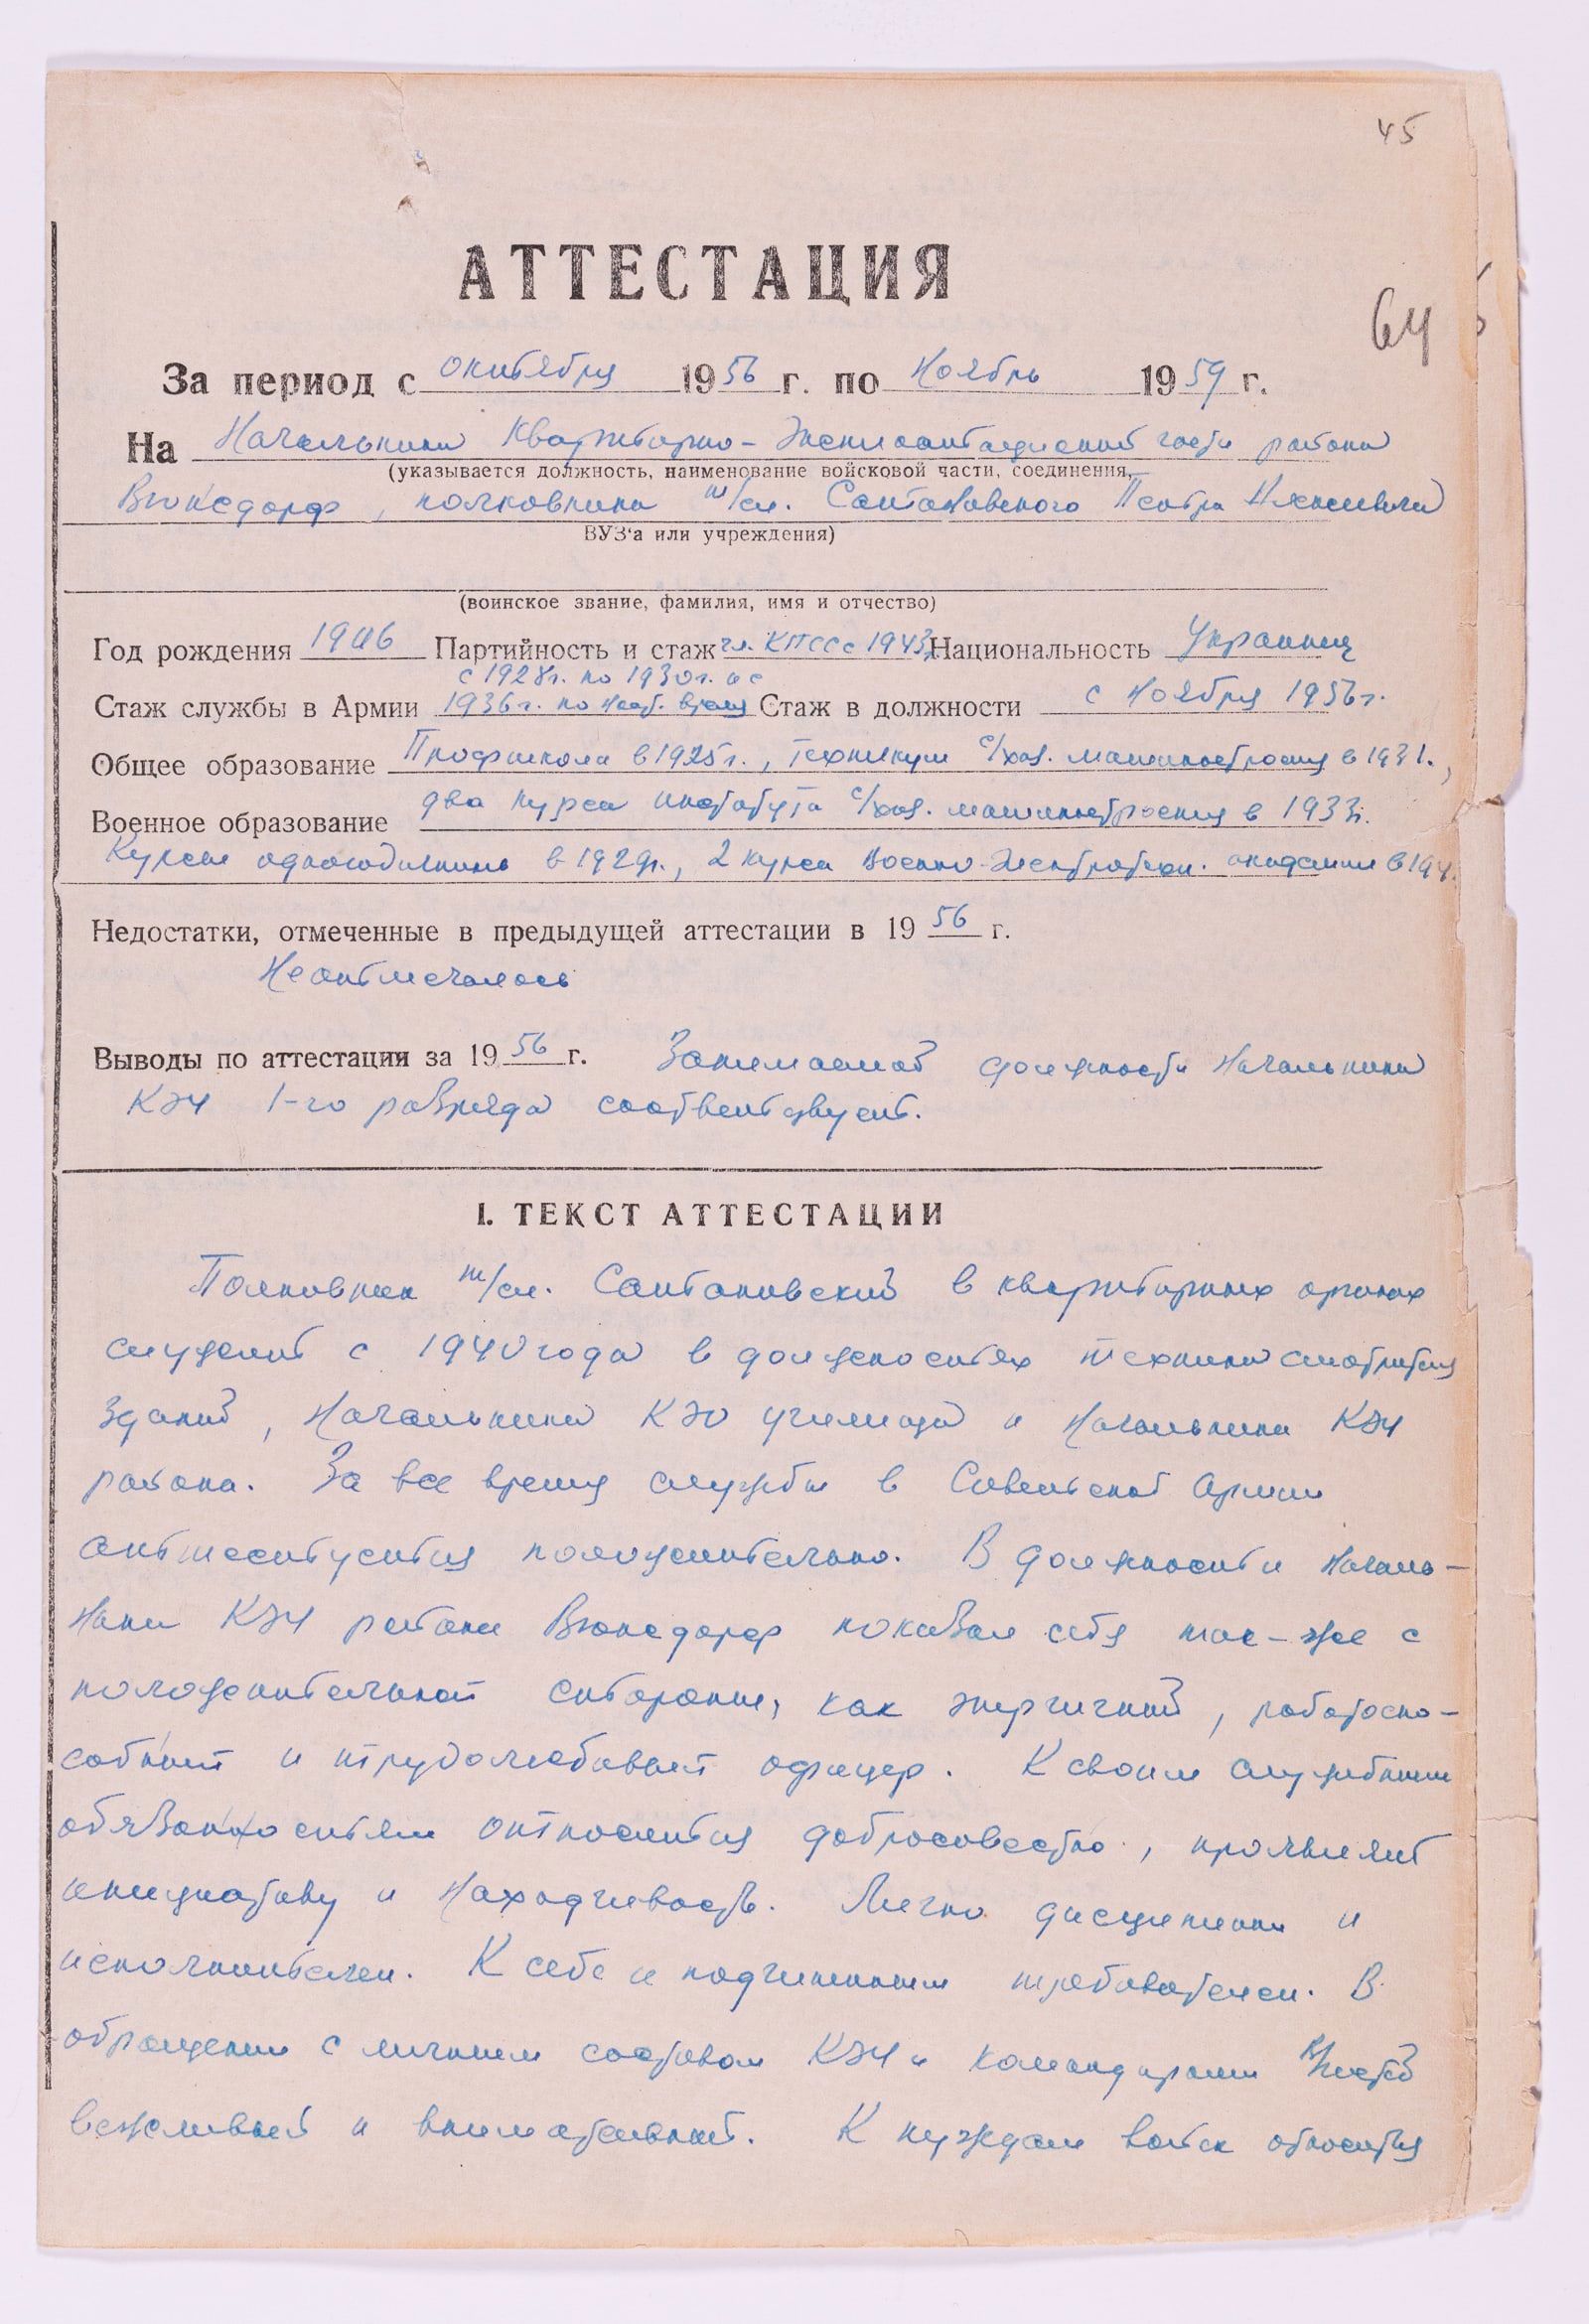 45
АТТЕСТАЦИЯ
64
За период с октября 1956 г. по Ноябрь 1959 г.
На Начальника Квартирно-Эксплоатационной части района
(указывается должность, наименование войсковой части, соединения,
Вюнсдорф, полковника т/сл. Сантановского Петра
ВУЗ'а или учреждения)
(воинское звание, фамилия, имя и отчество)
Год рождения 1906 Партийность и стаж чл. КПСС с 1943 Национальность Украинец
с 1928г. по 1930г. и с
Стаж службы в Армии 1936г. по наст. время Стаж в должности с Ноября 1956г.
Общее образование Профшкола в 1925г., техникум с/хоз. машиностроения в 1931.,
два курса института с/хоз. машиностроения в 1933г.
Военное образование
Курсы одногодичников в 1929г., 2 курса Военно-Электротехн. академии в 194
Недостатки, отмеченные в предыдущей аттестации в 1956 г.
Не отмечалось
Выводы по аттестации за 1956 г. Занимаемой должности Начальника
КЭЧ 1-го разряда соответствует.
I. ТЕКСТ АТТЕСТАЦИИ
Полковник т/сл. Сантановский в квартирных органах
служит с 1940 года в должностях техника смотрителя
зданий, Начальника КЭО училища и Начальника КЭЧ
района. За все время службы в Советской Армии
аттестуется положительно. В должности Началь-
ника КЭЧ района Вюнсдорф показал себя так-же с
положительной стороны, как энергичный, работоспо-
собный и трудолюбивый офицер. К своим служебным
обязанностям относится добросовестно, проявляет
инициативу и находчивость. Лично дисциплинирован и
исполнителен. К себе и подчиненным требователен. В
обращении с личным составом КЭЧ и командирами в/частей
вежливый и внимательный. К нуждам войск относится